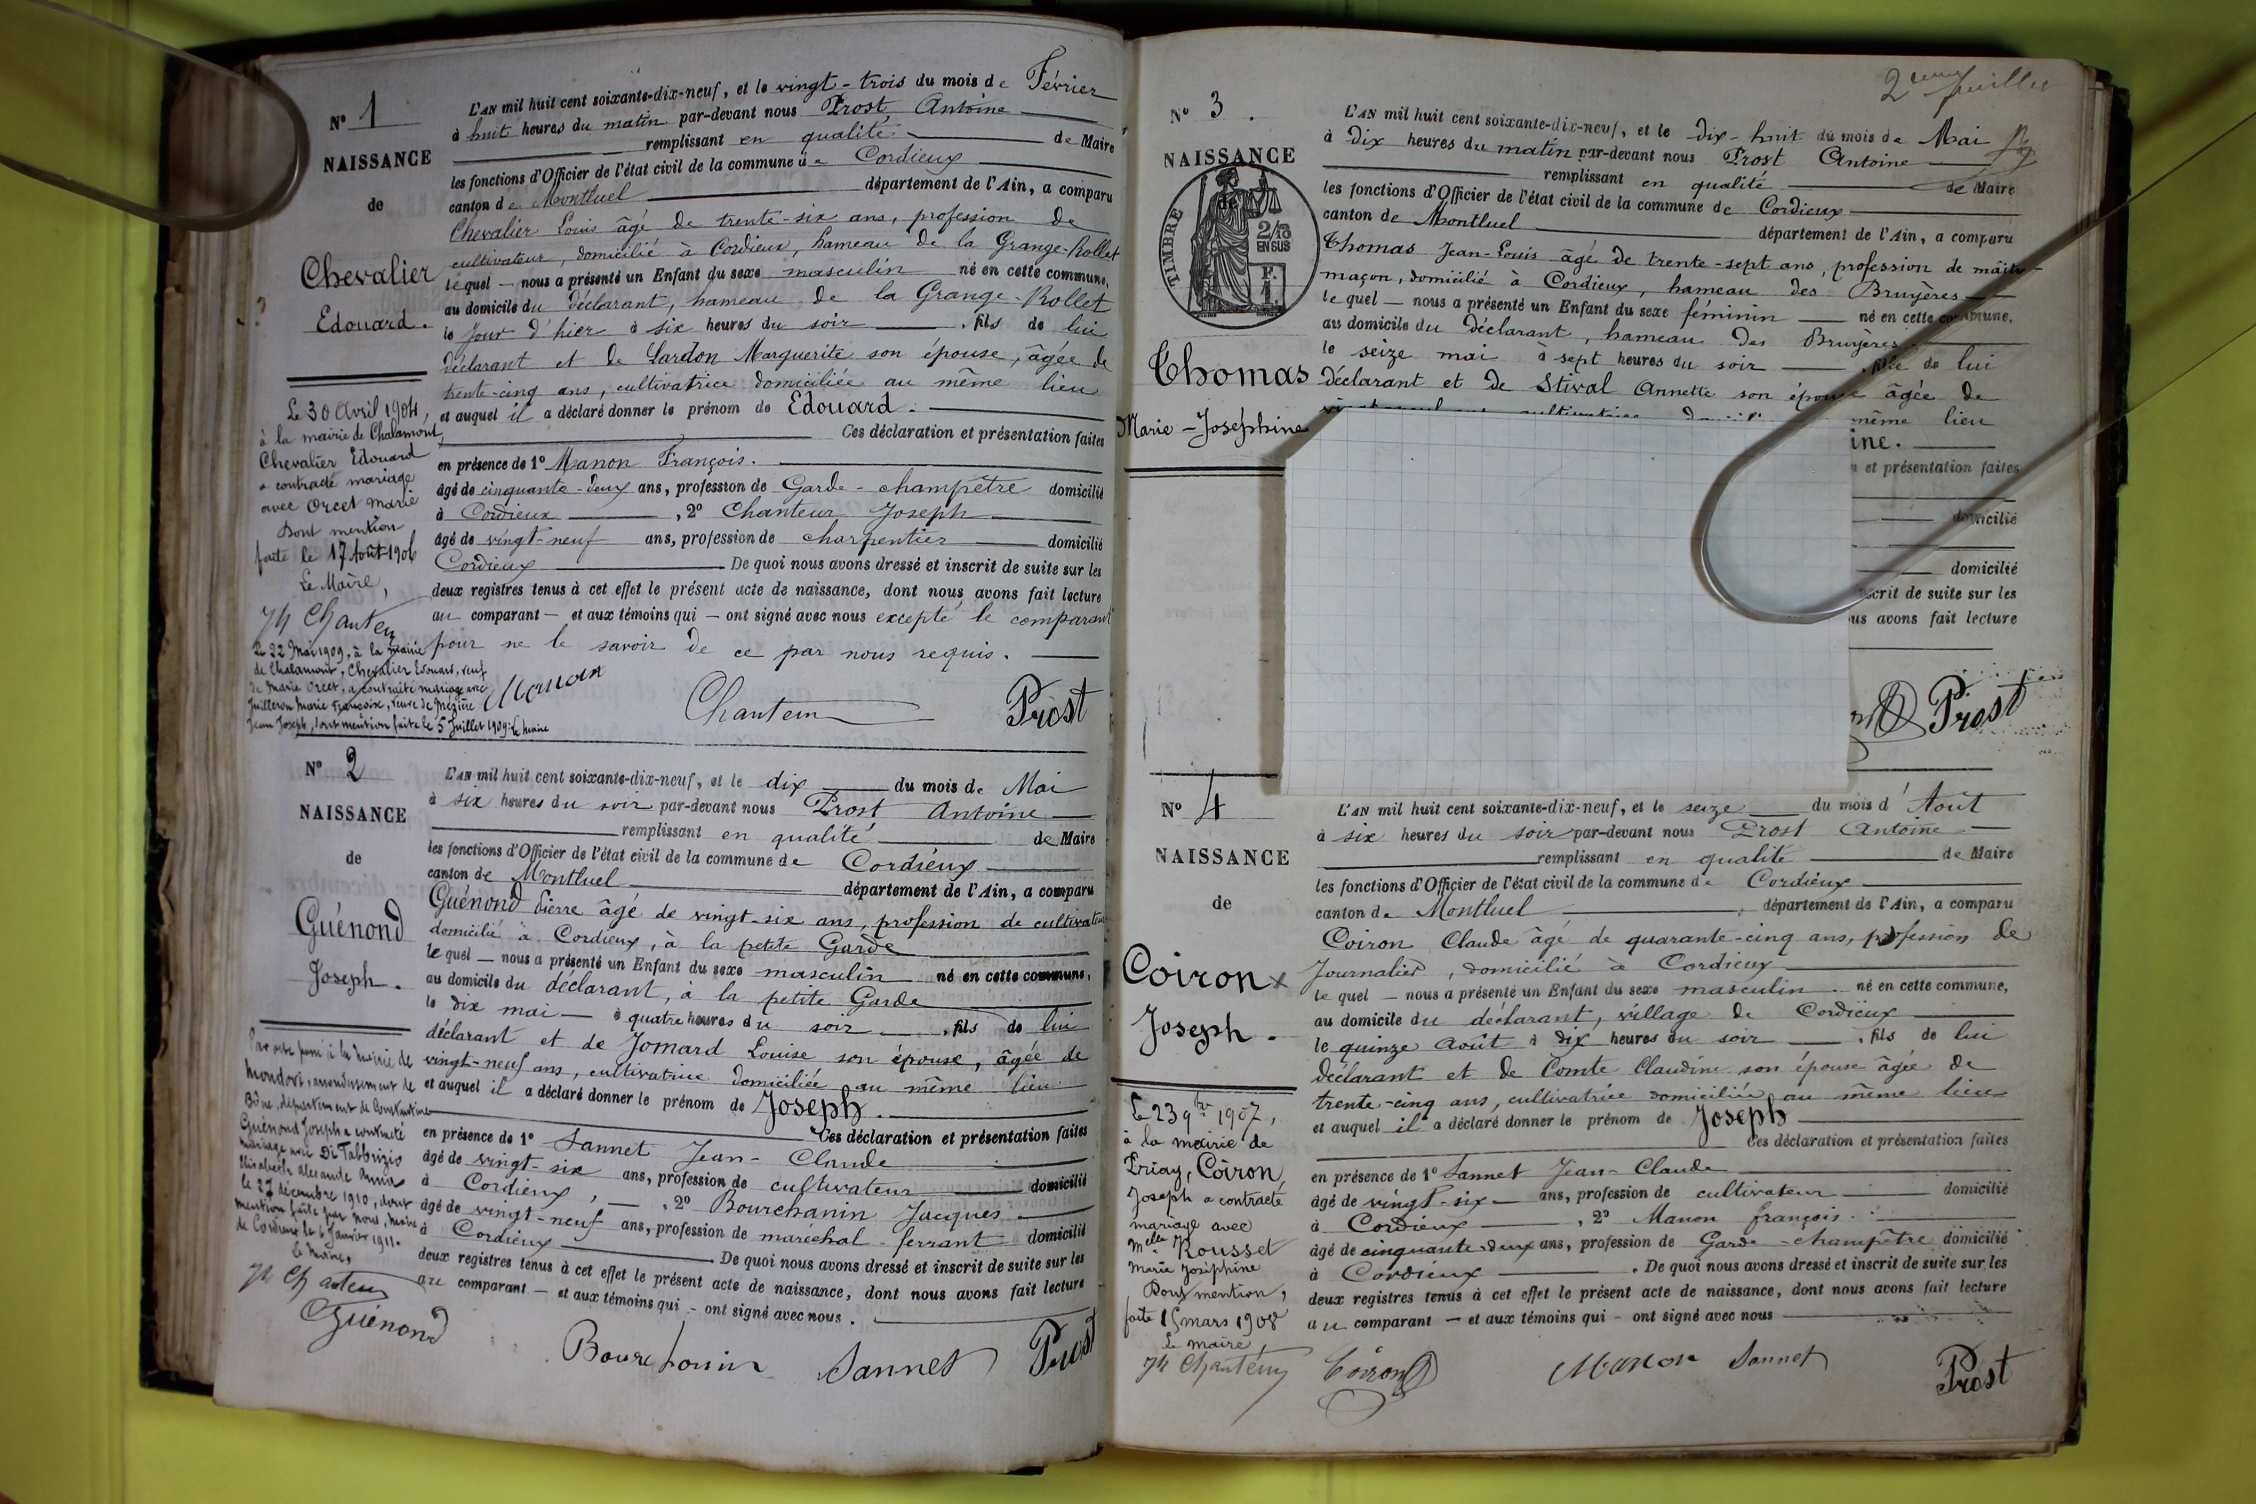 Nº 1
NAISSANCE
de
Chevalier
Edouard.
L'AN mil huit cent soixante-dix-neuf, et le vingt-trois du mois de Février
à huit heures du matin par-devant nous Prost Antoine
remplissant en qualité de Maire
les fonctions d'Officier de l'état civil de la commune de Cordieux
canton de Montluel département de l'Ain, a comparu
Chevalier Louis âgé de trente-six ans, profession de
cultivateur, domicilié à Cordieux, hameau de la Grange-Rollet
lequel — nous a présenté un Enfant du sexe masculin né en cette commune,
au domicile du déclarant, hameau de la Grange-Rollet
le jour d'hier à six heures du soir , fils de lui
déclarant et de Lardon Marguerite son épouse, âgée de
trente-cinq ans, cultivatrice domiciliée au même lieu
et auquel il a déclaré donner le prénom de Edouard.
Ces déclaration et présentation faites
en présence de 1º Manon François.
âgé de cinquante-deux ans, profession de Garde-champêtre domicilié
à Cordieux , 2º Chanteur Joseph
âgé de vingt-neuf ans, profession de charpentier domicilié
Cordieux De quoi nous avons dressé et inscrit de suite sur les
deux registres tenus à cet effet le présent acte de naissance, dont nous avons fait lecture
au comparant — et aux témoins qui — ont signé avec nous excepté le comparant
pour ne le savoir de ce par nous requis.
Manon
Prost
Le 30 Avril 1904,
à la mairie de Chalamont,
Chevalier Edouard
a contracté mariage
avec Orcet Marie
Dont mention
faite le 17 Août 1906
Le Maire,
Le 22 Mai 1909, à la mairie
de Chalamont, Chevalier Edouard, veuf
de Marie Orcet, a contracté mariage avec
Juilleron Marie Françoise, veuve de
Jean Joseph, dont mention faite le 5 Juillet 1909. Le Maire
Nº 2
NAISSANCE
de
Guénond
Joseph.
L'AN mil huit cent soixante-dix-neuf, et le dix du mois de Mai
à six heures du soir par-devant nous Prost Antoine
remplissant en qualité de Maire
les fonctions d'Officier de l'état civil de la commune de Cordieux
canton de Montluel département de l'Ain, a comparu
Guénond Pierre âgé de vingt-six ans, profession de cultivateur
domicilié à Cordieux, à la petite Garde
lequel — nous a présenté un Enfant du sexe masculin né en cette commune,
au domicile du déclarant, à la petite Garde
le dix mai — à quatre heures du soir , fils de lui
déclarant et de Jomard Louise son épouse, âgée de
vingt-neuf ans, cultivatrice domiciliée au même lieu
et auquel il a déclaré donner le prénom de Joseph.
Ces déclaration et présentation faites
en présence de 1º Sannet Jean-Claude
âgé de vingt-six ans, profession de cultivateur domicilié
à Cordieux, , 2º Bourchanin Jacques
âgé de vingt-neuf ans, profession de maréchal-ferrant domicilié
à Cordieux De quoi nous avons dressé et inscrit de suite sur les
deux registres tenus à cet effet le présent acte de naissance, dont nous avons fait lecture
au comparant — et aux témoins qui — ont signé avec nous.
Guénond
Bourchanin Sannet Prost
Par acte passé à la Mairie de
Mondovi, arrondissement de
Bône, département de Constantine
Guénond Joseph a contracté
mariage avec Di Fabbrizio
Elisabeth Anna
le 27 décembre 1910, dont
mention faite par Nous, Maire
de Cordieux le 6 Janvier 1911.
Le Maire,
2eme feuillet
Nº 3.
NAISSANCE
de
TIMBRE
2/10
EN SUS
F.
1
Thomas
Marie-Joséphine
L'AN mil huit cent soixante-dix-neuf, et le dix-huit du mois de Mai
à dix heures du matin par-devant nous Prost Antoine
remplissant en qualité de Maire
les fonctions d'Officier de l'état civil de la commune de Cordieux
canton de Montluel département de l'Ain, a comparu
Thomas Jean-Louis âgé de trente-sept ans, profession de maître-
maçon, domicilié à Cordieux, hameau des Bruyères
lequel — nous a présenté un Enfant du sexe féminin né en cette commune,
au domicile du déclarant, hameau des Bruyères.
le seize mai à sept heures du soir , fille de lui
déclarant et de Stival Annette son épouse âgée de
même lieu
ine.
et présentation faites
domicilié
domicilié
scrit de suite sur les
us avons fait lecture
Prost
Nº 4
NAISSANCE
de
Coiron
Joseph.
L'AN mil huit cent soixante-dix-neuf, et le seize du mois d'Août
à six heures du soir par-devant nous Prost Antoine
remplissant en qualité de Maire
les fonctions d'Officier de l'état civil de la commune de Cordieux
canton de Montluel département de l'Ain, a comparu
Coiron Claude âgé de quarante-cinq ans, profession de
Journalier, domicilié à Cordieux
lequel — nous a présenté un Enfant du sexe masculin né en cette commune,
au domicile du déclarant, village de Cordieux
le quinze Août à dix heures du soir , fils de lui
déclarant et de Comte Claudine son épouse âgée de
trente-cinq ans, cultivatrice domiciliée au même lieu
et auquel il a déclaré donner le prénom de Joseph
Ces déclaration et présentation faites
en présence de 1º Sannet Jean-Claude
âgé de vingt-six — ans, profession de cultivateur domicilié
à Cordieux , 2º Manon françois
âgé de cinquante-deux ans, profession de Garde-champêtre domicilié
à Cordieux . De quoi nous avons dressé et inscrit de suite sur les
deux registres tenus à cet effet le présent acte de naissance, dont nous avons fait lecture
au comparant — et aux témoins qui — ont signé avec nous
Coiron Manon Sannet Prost
Le 23 9bre 1907,
à la mairie de
Priay, Coiron
Joseph a contracté
mariage avec
Melle Rousset
Marie Joséphine
Dont mention,
faite 15 mars 1908
Le maire